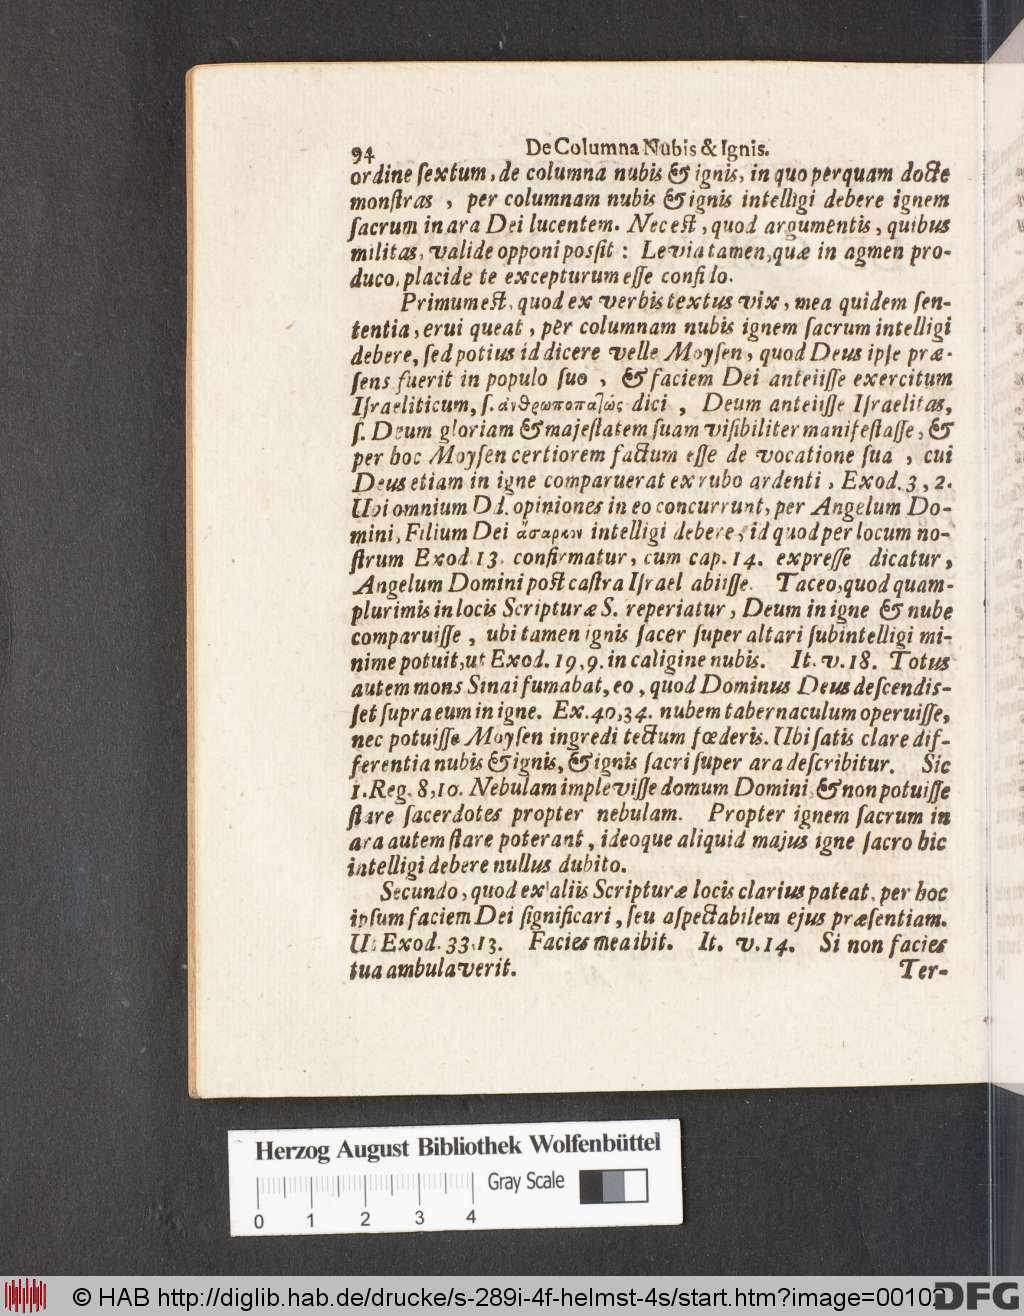 94 De Columna Nubis & Ignis.
ordine ſextum, de columna nubis & ignis, in quo perquam docte
monſtras , per columnam nubis & ignis intelligi debere ignem
ſacrum in ara Dei lucentem. Nec eſt, quod argumentis, quibus
militas, valide opponi posſit : Levia tamen, quæ in agmen pro-
duco, placide te excepturum eſſe confido.
Primum eſt, quod ex verbis textus vix, mea quidem ſen-
tentia, erui queat , per columnam nubis ignem ſacrum intelligi
debere, ſed potius id dicere velle Moyſen, quod Deus ipſe præ-
ſens fuerit in populo ſuo , & faciem Dei anteiiſſe exercitum
Iſraeliticum, ſ. ἀνθρωποπαθῶς dici , Deum anteiiſſe Iſraelitas,
ſ. Deum gloriam & majeſtatem ſuam viſibiliter manifeſtaſſe, &
per hoc Moyſen certiorem factum eſſe de vocatione ſua , cui
Deus etiam in igne comparuerat ex rubo ardenti , Exod. 3 , 2.
Ubi omnium Dd. opiniones in eo concurrunt, per Angelum Do-
mini, Filium Dei ἄσαρκον intelligi debere, id quod per locum no-
ſtrum Exod. 13. confirmatur, cum cap. 14. expreſſe dicatur,
Angelum Domini poſt caſtra Iſrael abiiſſe. Taceo, quod quam-
plurimis in locis Scripturæ S. reperiatur, Deum in igne & nube
comparuiſſe , ubi tamen ignis ſacer ſuper altari ſubintelligi mi-
nime potuit, ut Exod. 19, 9. in caligine nubis. It. v. 18. Totus
autem mons Sinai fumabat, eo , quod Dominus Deus deſcendis-
ſet ſupra eum in igne. Ex. 40, 34. nubem tabernaculum operuiſſe,
nec potuiſſe Moyſen ingredi tectum fœderis. Ubi ſatis clare dif-
ferentia nubis & ignis, & ignis ſacri ſuper ara deſcribitur. Sic
1. Reg. 8, 10. Nebulam impleviſſe domum Domini, & non potuiſſe
ſtare ſacerdotes propter nebulam. Propter ignem ſacrum in
ara autem ſtare poterant , ideoque aliquid majus igne ſacro hic
intelligi debere nullus dubito.
Secundo, quod ex aliis Scripturæ locis clarius pateat, per hoc
ipſum faciem Dei ſignificari , ſeu aſpectabilem ejus præſentiam.
Ut Exod. 33, 13. Facies mea ibit. It. v. 14. Si non facies
tua ambulaverit. Ter-
Herzog August Bibliothek Wolfenbüttel
Gray Scale
0 1 2 3 4
© HAB http://diglib.hab.de/drucke/s-289i-4f-helmst-4s/start.htm?image=00102
DFG